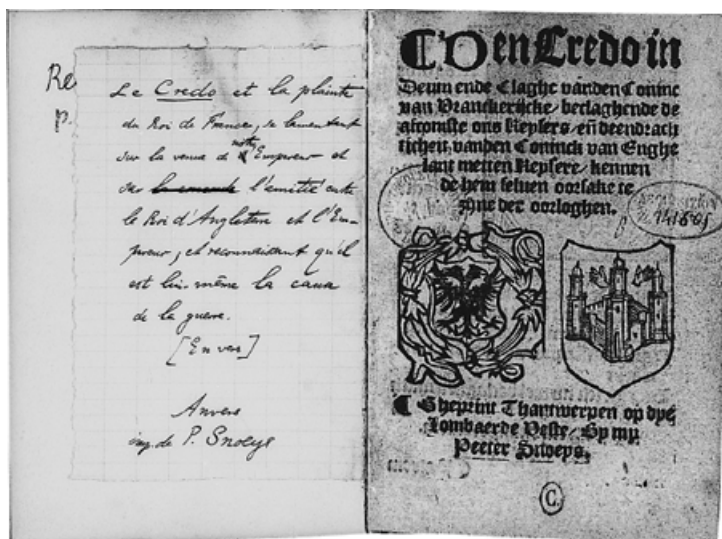 Re
p.
Le Credo et la plainte
du Roi de France, se lamentant
sur la venue de notre Empereur et
sur l'amitié entre
le Roi d'Angleterre et l'Em-
pereur, et reconnaissant qu'il
est lui-même la cause
de la guerre.
[En vers]
Anvers
imp. de P. Snoeys
Den Credo in
Deum ende Claghe vanden Coninc
van Vranckerijcke / beclaghende de
aencomste ons Keysers / en̄ deendrach
ticheyt vanden Coninck van Enghe
lant metten Keysere / kennen
de hem seluen oorsake te
zijne der oorloghen.
141805
Gheprint Thantwerpen op dye
Lombaerde Veste / By my
Peeter Snoeys.
C.